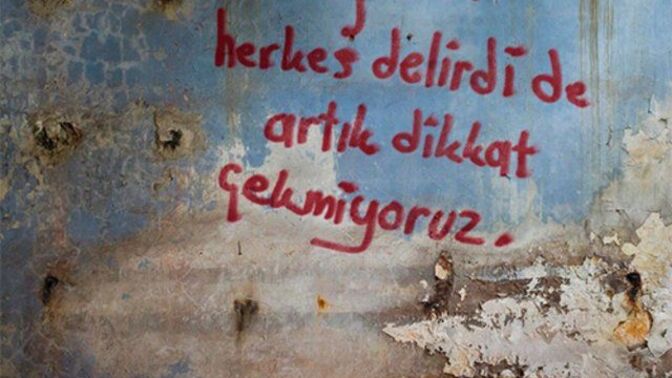 herkeş delirdi de
artık dikkat
çekmiyoruz.